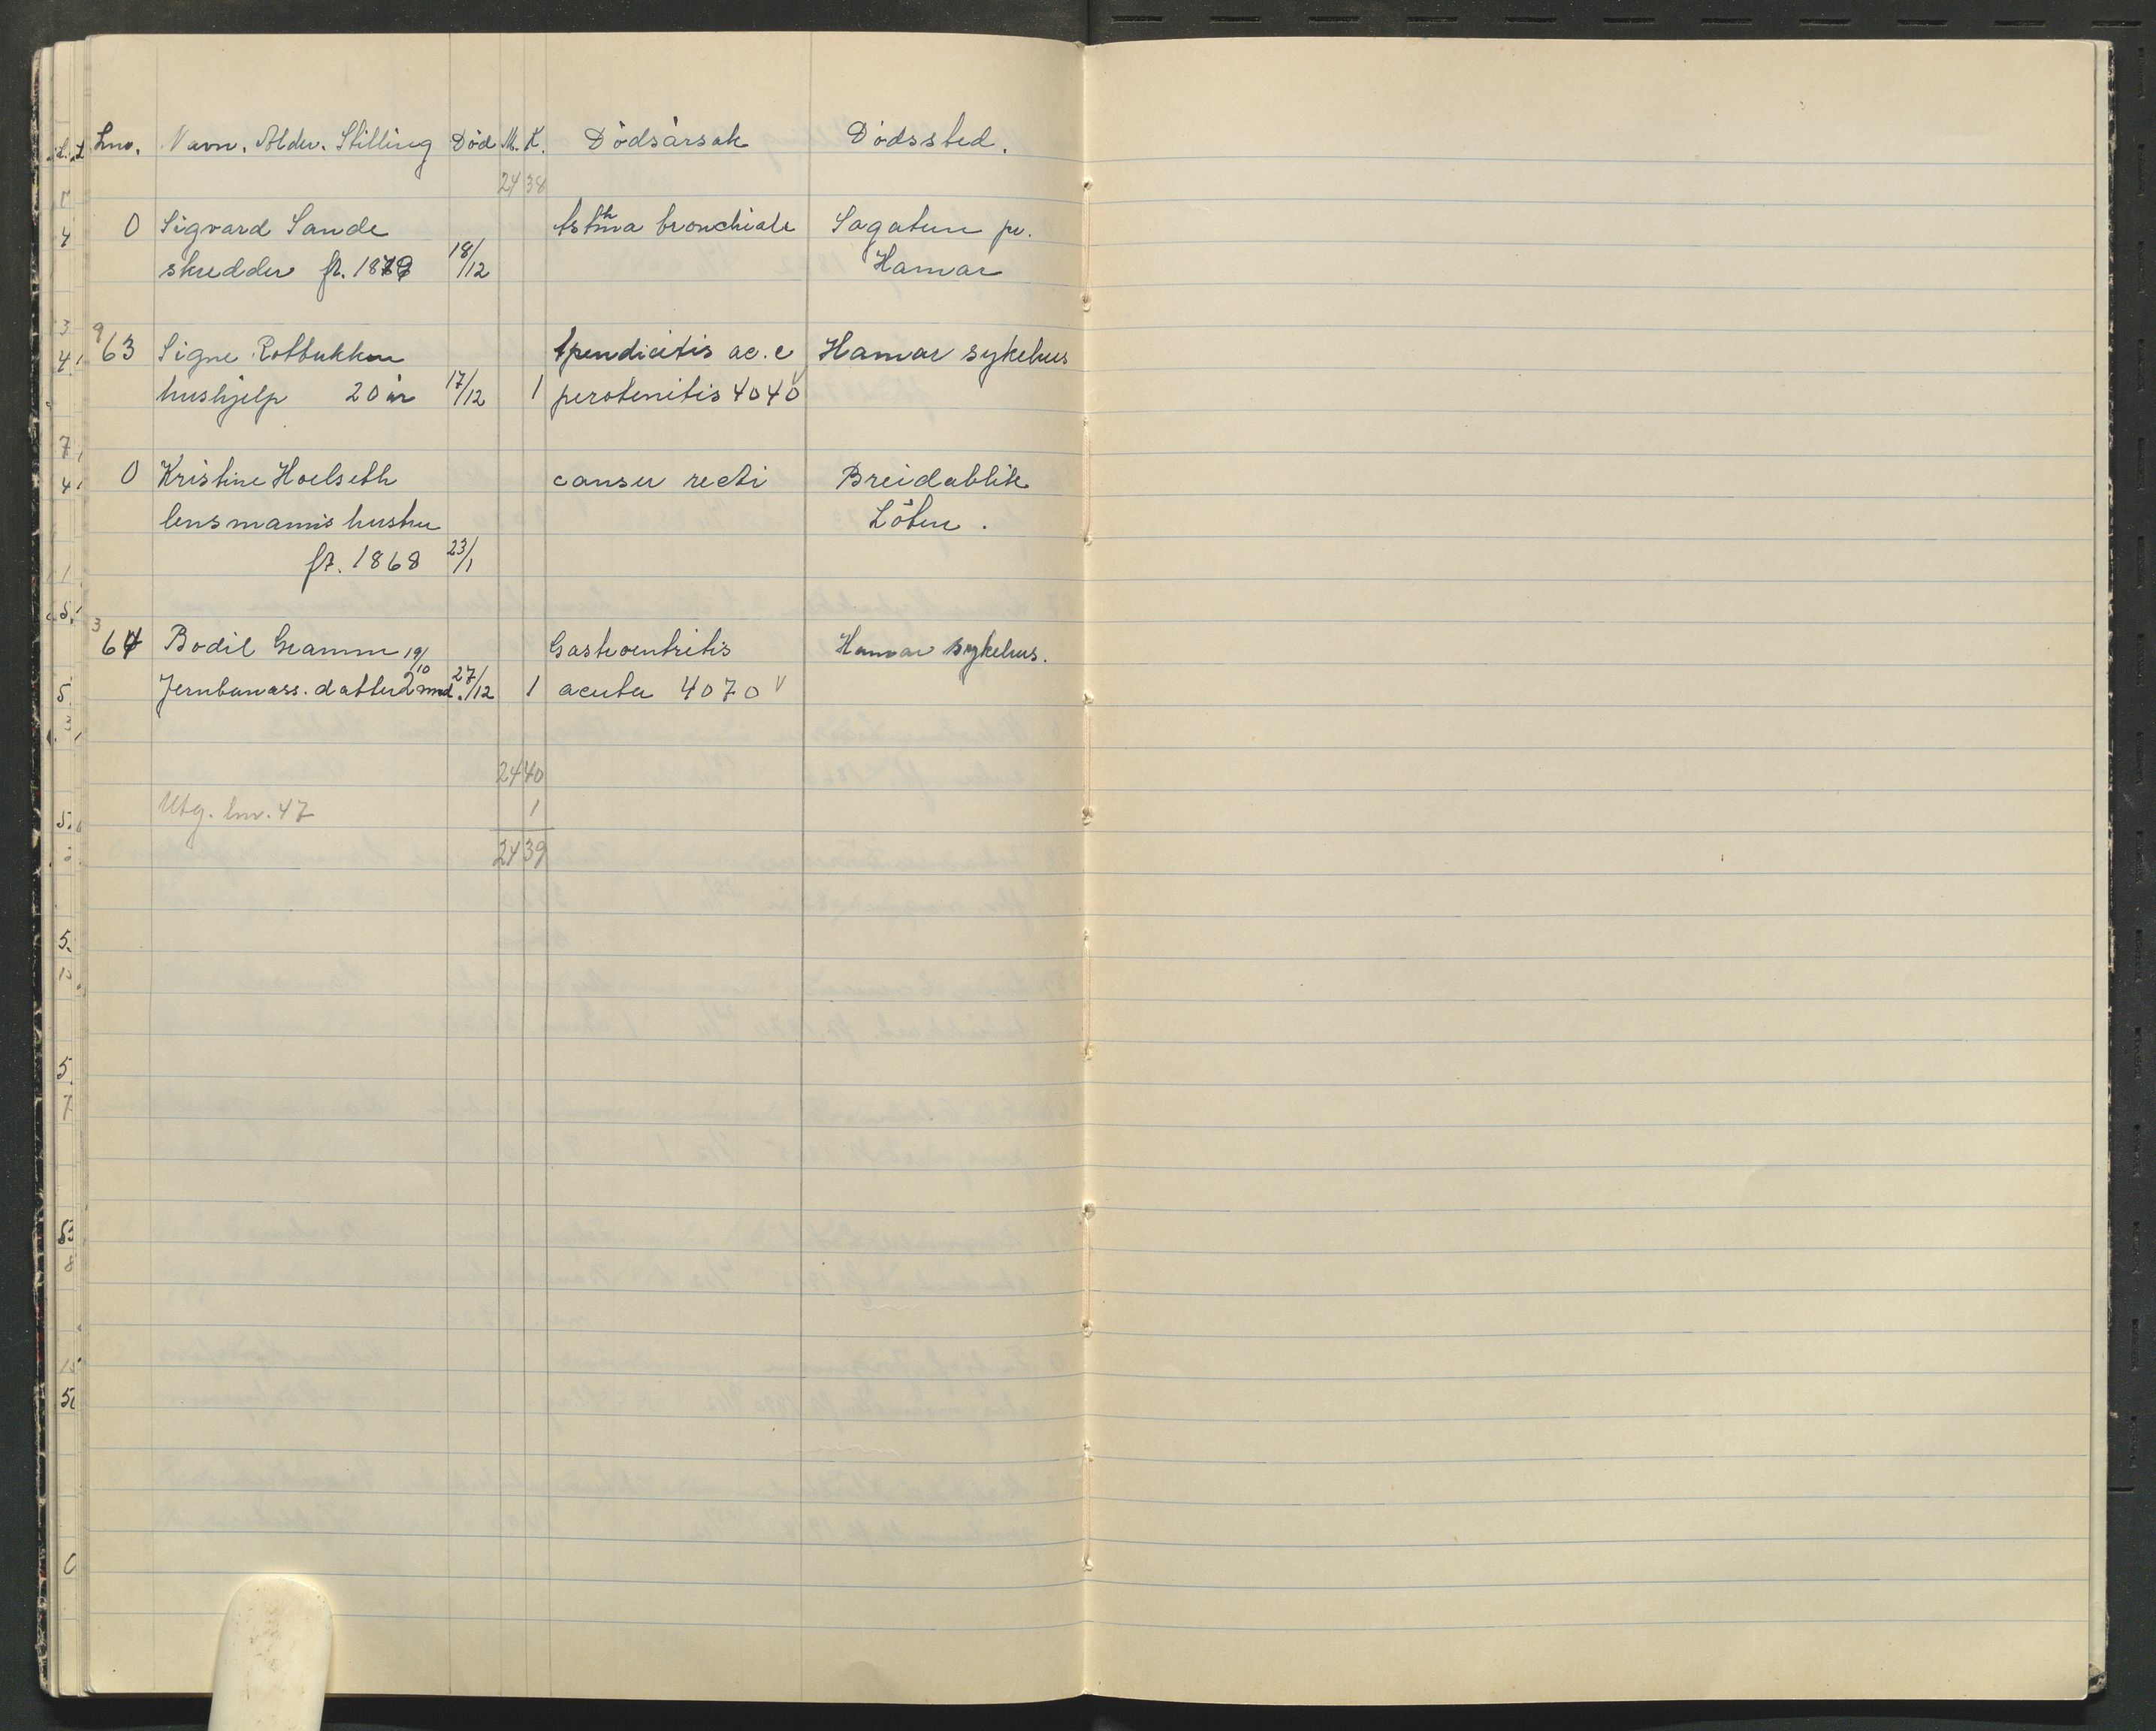 Lnr. Navn. Alder. Stilling Död M. K. Dödsårsak Dödssted.
24 38
0 Sigvard Sande Asthma bronchiale Sagatun pr.
skredder fr. 1879 18/12 Hamar
9
63 Signe Rotbukken Apendicitis ac. c Hamar sykehus
hushjelp 20 år 17/12 1 perotenitis 4040 v
0 Kristine Hoelseth canser recti Breidablik
lensmanns hustru Löten.
fr. 1868 23/1
3
64 Bodil Gramm 19/10 Gastroentritis Hamar sykehus.
Jernbanass. datter 2 mnd. 27/12 1 acuta 4070 v
24 40
Utg. lnr. 47 1
24 39